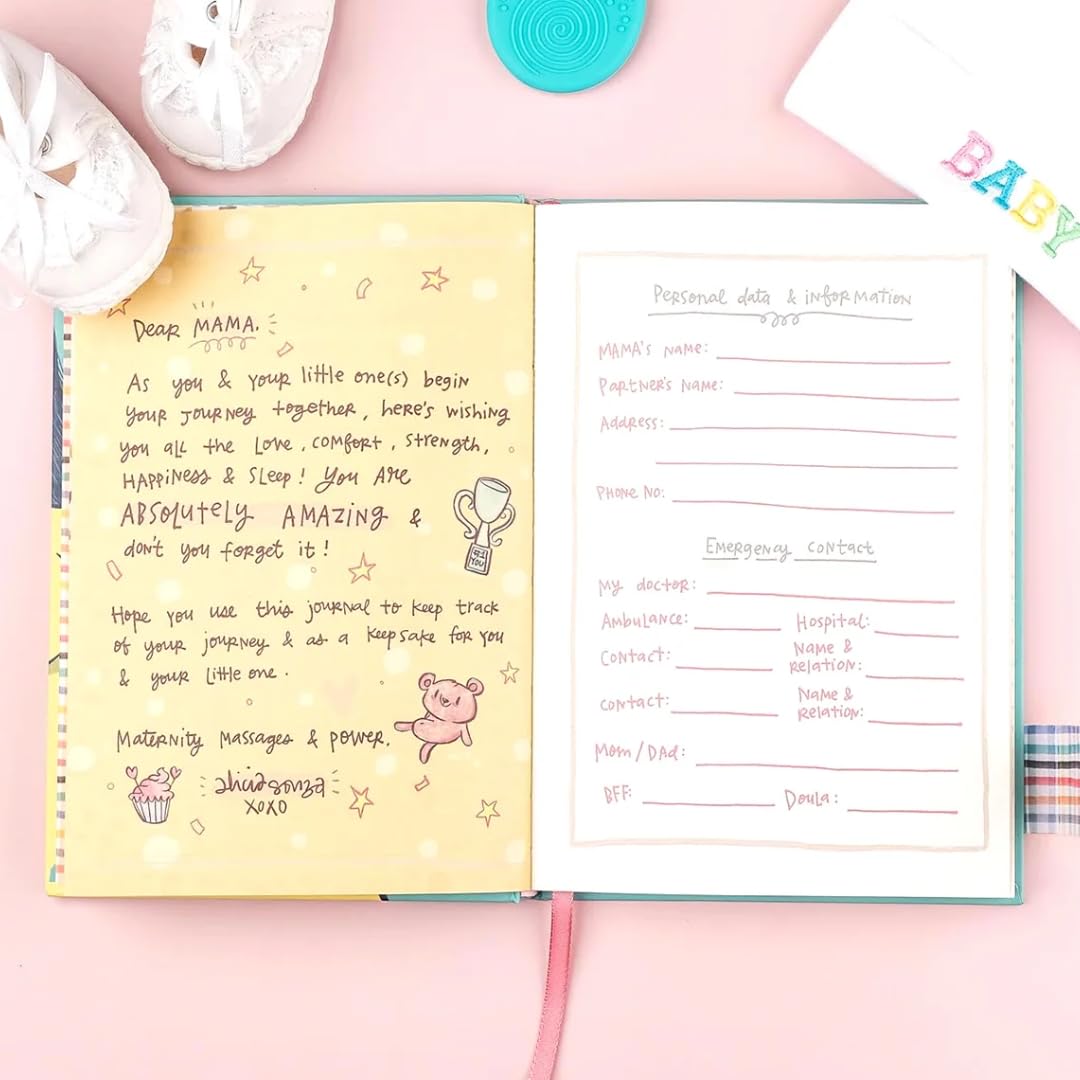 Dear MAMA.
As you & your little one(s) begin
your journey together, here's wishing
you all the Love, comfort, strength,
HAPPINESS & SLEEP! You ARE
ABSOLUTELY AMAZING &
don't you forget it!
Hope you use this journal to keep track
of your journey & as a keepsake for you
& your Little one.
Maternity Massages & power.
aliciasouza
XOXO
YOU
Personal data & information
MAMA'S NAME:
Partner's Name:
Address:
PHONE NO:
Emergency contact
My doctor:
Ambulance: Hospital:
Contact: Name &
Relation:
Contact: Name &
Relation:
Mom/DAd:
BFF: Doula:
BABY